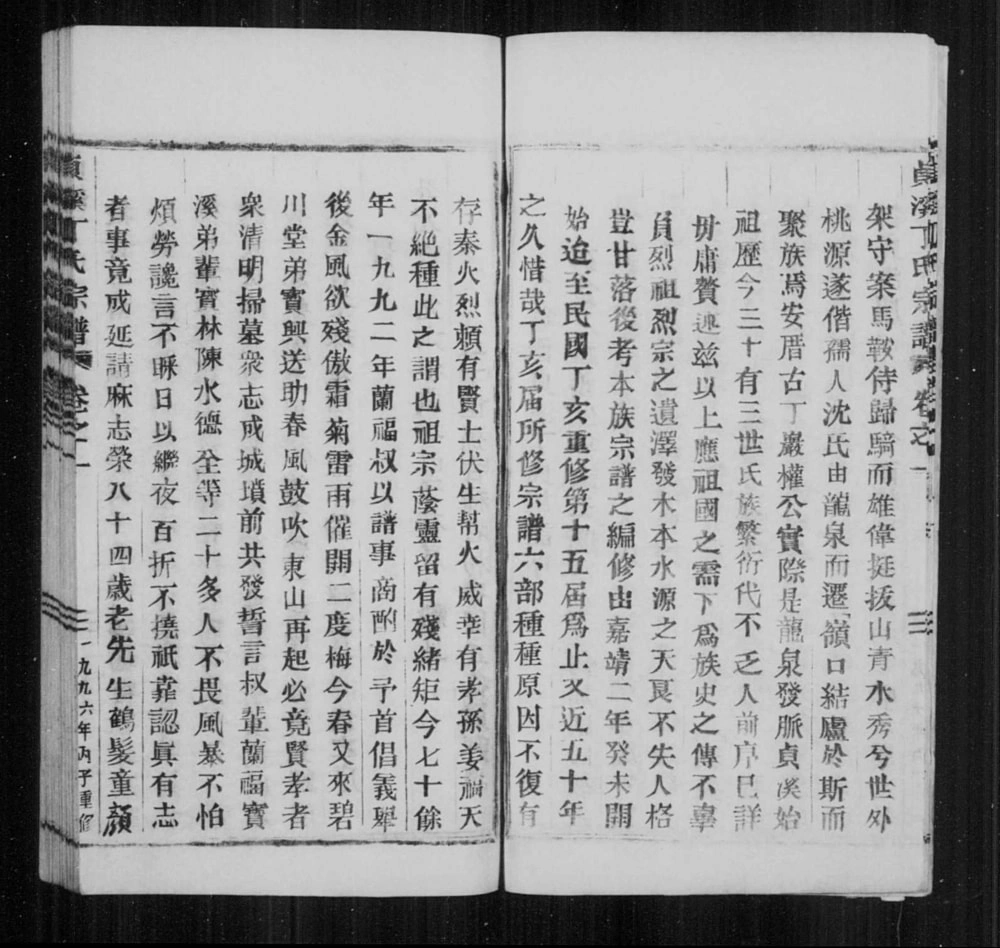 貞溪丁氏宗譜 卷之一
架守案馬鞍侍歸騎而雄偉挺拔山青水秀兮世外
桃源遂偕孺人沈氏由龍泉而遷嶺口結廬於斯而
聚族爲安厝古丁巖權公實際是龍泉發脈貞溪始
祖歷今三十有三世氏族繁衍代不乏人前序已詳
毋庸贅述兹以上應祖國之需下爲族史之傳不辜
負烈祖烈宗之遺澤發木本水源之天良不失人格
豈甘落後考本族宗譜之編修由嘉靖二年癸未開
始迨至民國丁亥重修第十五屆爲止又近五十年
之久惜哉丁亥屆所修宗譜六部種種原因不復有
存秦火烈賴有賢士伏生幇火威幸有孝孫姜福天
不絕種此之謂也祖宗蔭靈留有殘緒矩今七十餘
年一九九二年蘭福叔以譜事商酌於予首倡義舉
後金風欲殘傲霜菊雷雨催開二度梅今春又來碧
川堂弟寶興送助春風鼓吹東山再起必竟賢孝者
衆清明掃墓衆志成城墳前共發誓言叔輩蘭福寶
溪弟輩寶林陳水德全等二十多人不畏風暴不怕
煩勞讒言不眿日以繼夜百折不撓祇靠認眞有志
者事竟成延請麻志榮八十四歲老先生鶴髮童顏
貞溪丁氏宗譜 卷之一
一九九六年丙子重修